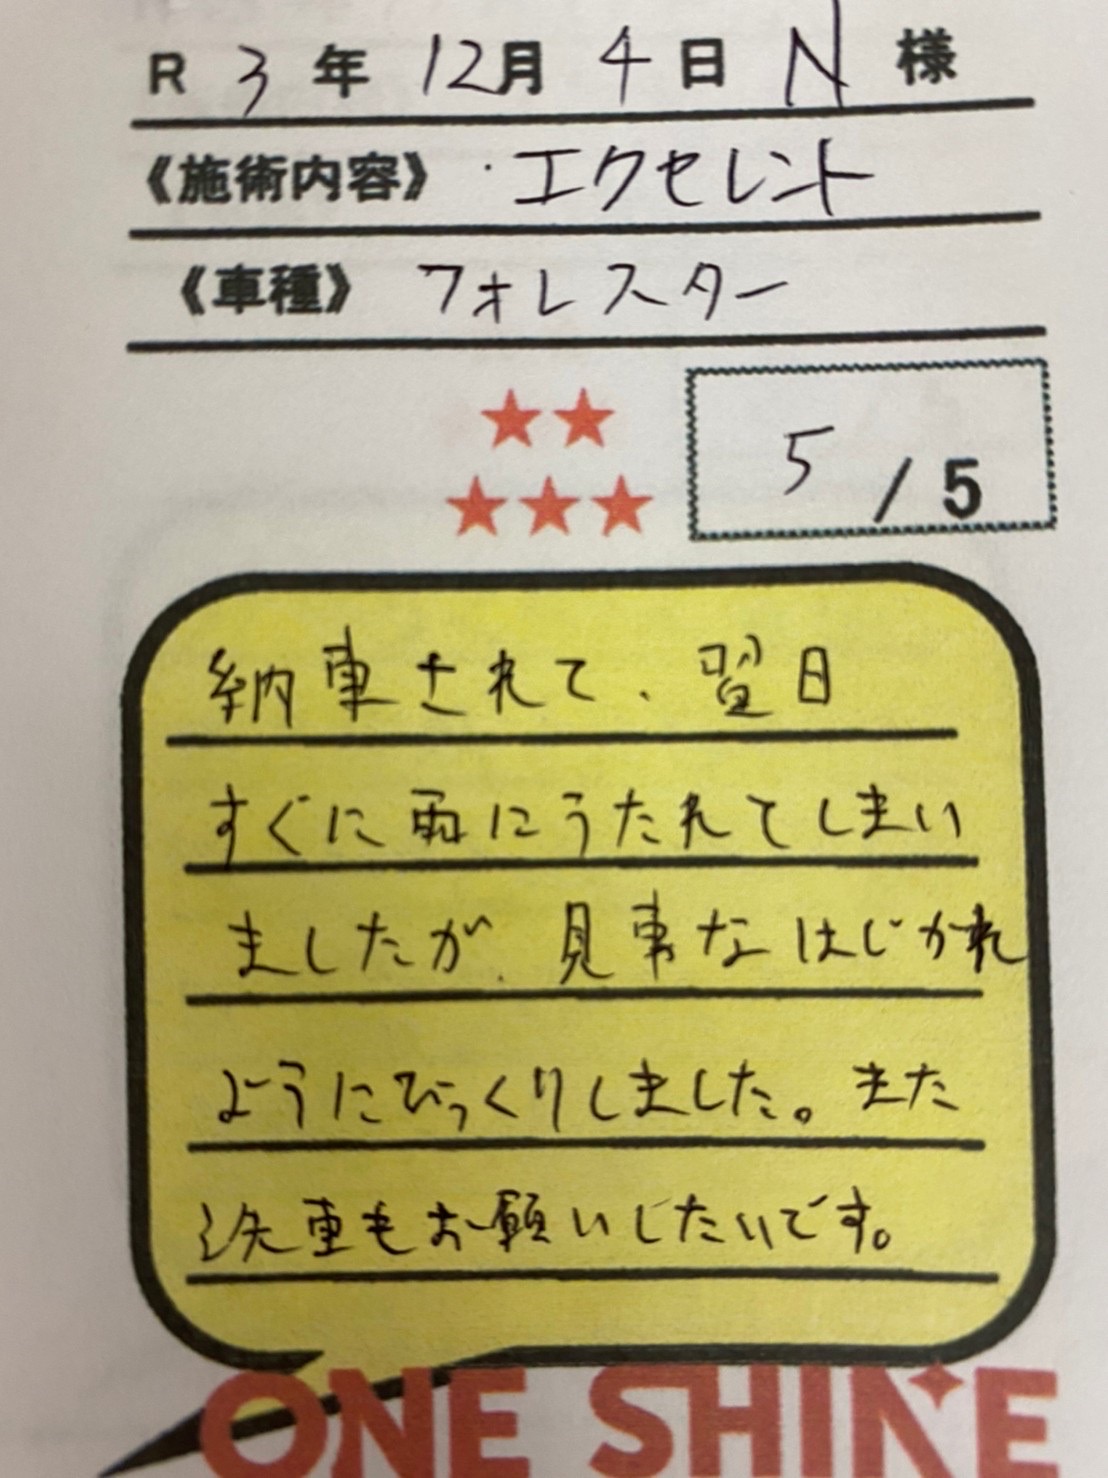 R 3 年 12月 4 日 N 様
《施術内容》 ・エクセレント
《車種》 フォレスター
5 / 5
納車されて、翌日
すぐに雨にうたれてしまい
ましたが、見事なはじかれ
ようにびっくりしました。また
洗車もお願いしたいです。
ONE SHINE